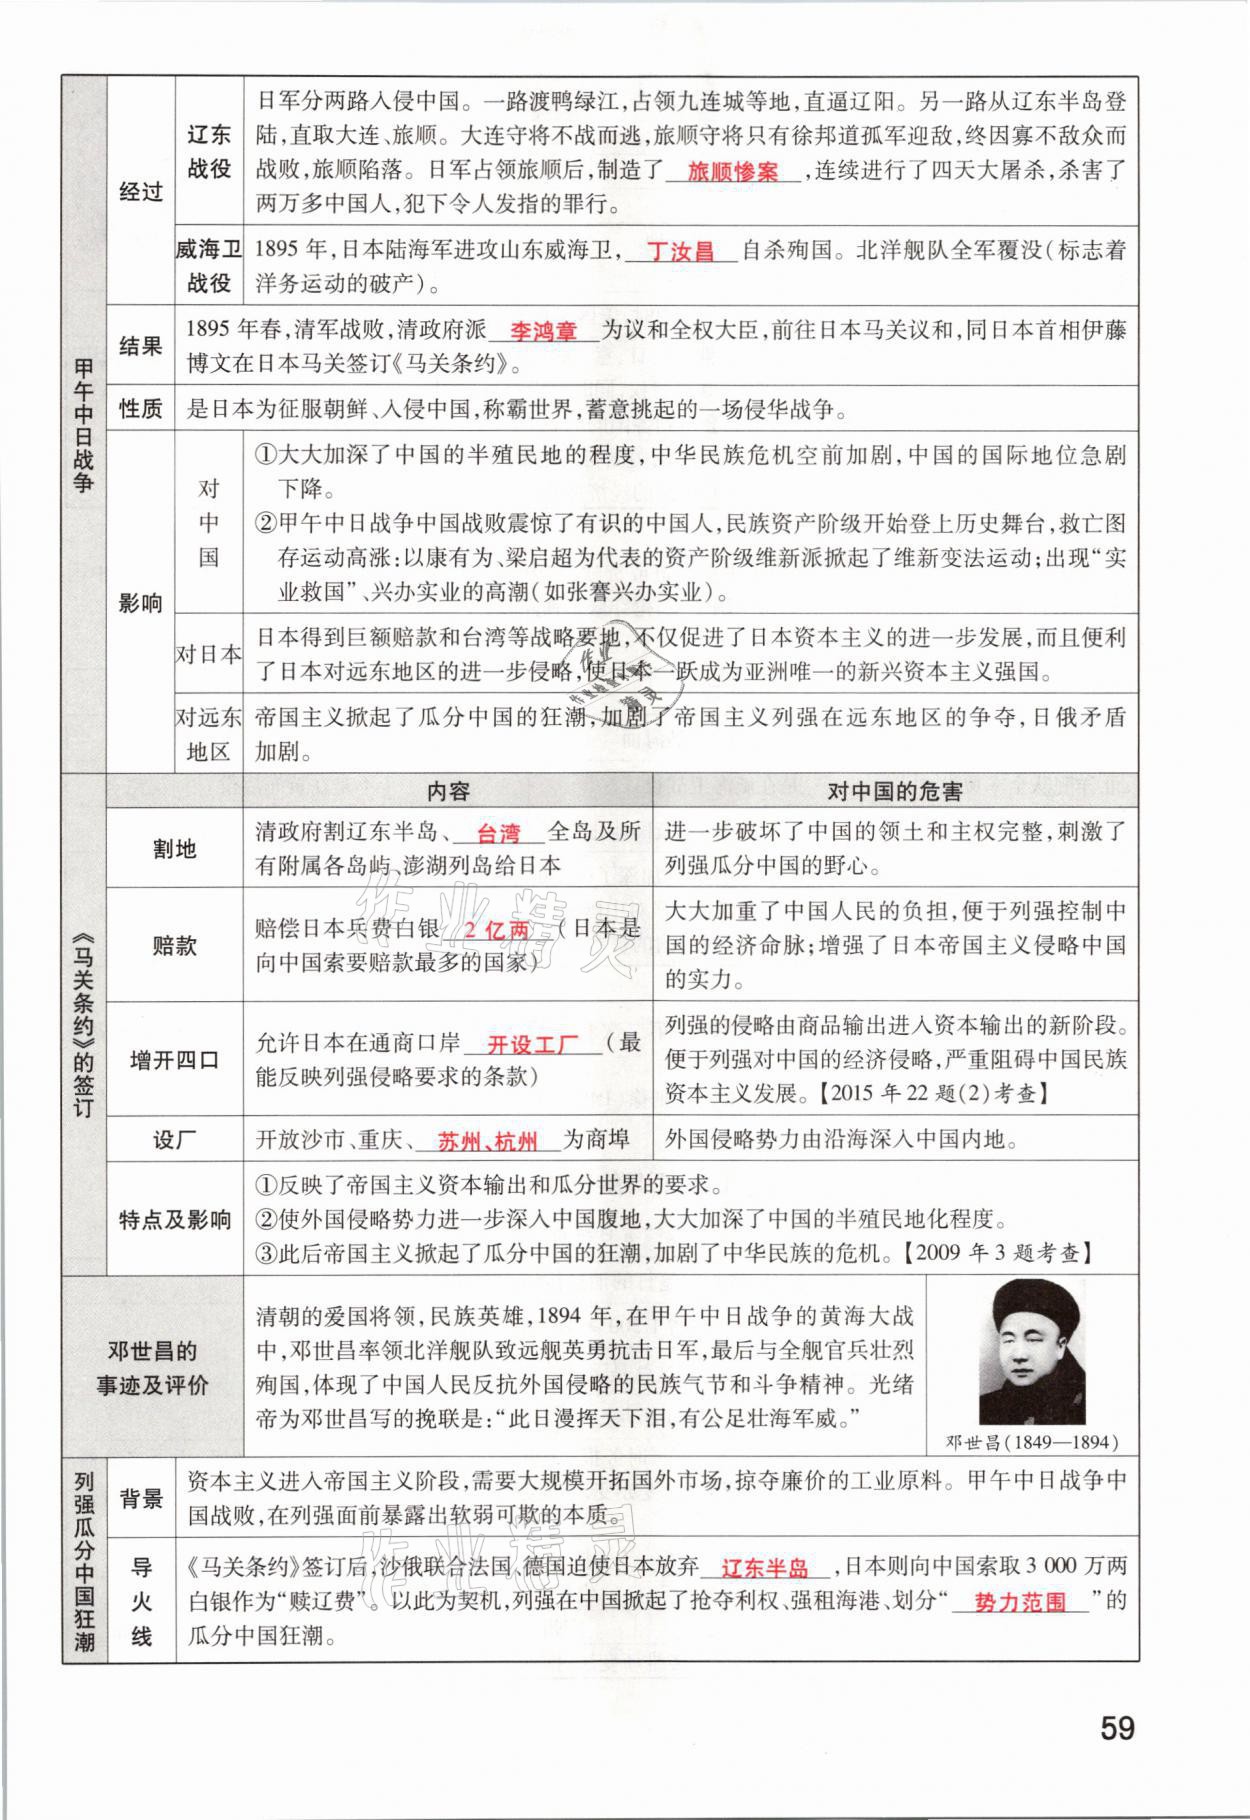 甲午中日战争
经过
辽东
战役
日军分两路入侵中国。一路渡鸭绿江,占领九连城等地,直逼辽阳。另一路从辽东半岛登
陆,直取大连、旅顺。大连守将不战而逃,旅顺守将只有徐邦道孤军迎敌,终因寡不敌众而
战败,旅顺陷落。日军占领旅顺后,制造了 旅顺惨案 ,连续进行了四天大屠杀,杀害了
两万多中国人,犯下令人发指的罪行。
威海卫
战役
1895 年,日本陆海军进攻山东威海卫, 丁汝昌 自杀殉国。北洋舰队全军覆没(标志着
洋务运动的破产)。
结果
1895 年春,清军战败,清政府派 李鸿章 为议和全权大臣,前往日本马关议和,同日本首相伊藤
博文在日本马关签订《马关条约》。
性质
是日本为征服朝鲜、入侵中国,称霸世界,蓄意挑起的一场侵华战争。
影响
对
中
国
①大大加深了中国的半殖民地的程度,中华民族危机空前加剧,中国的国际地位急剧
下降。
②甲午中日战争中国战败震惊了有识的中国人,民族资产阶级开始登上历史舞台,救亡图
存运动高涨:以康有为、梁启超为代表的资产阶级维新派掀起了维新变法运动;出现“实
业救国”、兴办实业的高潮(如张謇兴办实业)。
对日本
日本得到巨额赔款和台湾等战略要地,不仅促进了日本资本主义的进一步发展,而且便利
了日本对远东地区的进一步侵略,使日本一跃成为亚洲唯一的新兴资本主义强国。
对远东
地区
帝国主义掀起了瓜分中国的狂潮,加剧了帝国主义列强在远东地区的争夺,日俄矛盾
加剧。
《马关条约》的签订
内容
对中国的危害
割地
清政府割辽东半岛、 台湾 全岛及所
有附属各岛屿、澎湖列岛给日本
进一步破坏了中国的领土和主权完整,刺激了
列强瓜分中国的野心。
赔款
赔偿日本兵费白银 2 亿两 (日本是
向中国索要赔款最多的国家)
大大加重了中国人民的负担,便于列强控制中
国的经济命脉;增强了日本帝国主义侵略中国
的实力。
增开四口
允许日本在通商口岸 开设工厂 (最
能反映列强侵略要求的条款)
列强的侵略由商品输出进入资本输出的新阶段。
便于列强对中国的经济侵略,严重阻碍中国民族
资本主义发展。【2015 年 22 题(2)考查】
设厂
开放沙市、重庆、 苏州、杭州 为商埠
外国侵略势力由沿海深入中国内地。
特点及影响
①反映了帝国主义资本输出和瓜分世界的要求。
②使外国侵略势力进一步深入中国腹地,大大加深了中国的半殖民地化程度。
③此后帝国主义掀起了瓜分中国的狂潮,加剧了中华民族的危机。【2009 年 3 题考查】
邓世昌的
事迹及评价
清朝的爱国将领,民族英雄,1894 年,在甲午中日战争的黄海大战
中,邓世昌率领北洋舰队致远舰英勇抗击日军,最后与全舰官兵壮烈
殉国,体现了中国人民反抗外国侵略的民族气节和斗争精神。光绪
帝为邓世昌写的挽联是:“此日漫挥天下泪,有公足壮海军威。”
邓世昌(1849—1894)
列强瓜分中国狂潮
背景
资本主义进入帝国主义阶段,需要大规模开拓国外市场,掠夺廉价的工业原料。甲午中日战争中
国战败,在列强面前暴露出软弱可欺的本质。
导
火
线
《马关条约》签订后,沙俄联合法国、德国迫使日本放弃 辽东半岛 ,日本则向中国索取 3 000 万两
白银作为“赎辽费”。以此为契机,列强在中国掀起了抢夺利权、强租海港、划分“ 势力范围 ”的
瓜分中国狂潮。
作业精灵
作业精灵
59